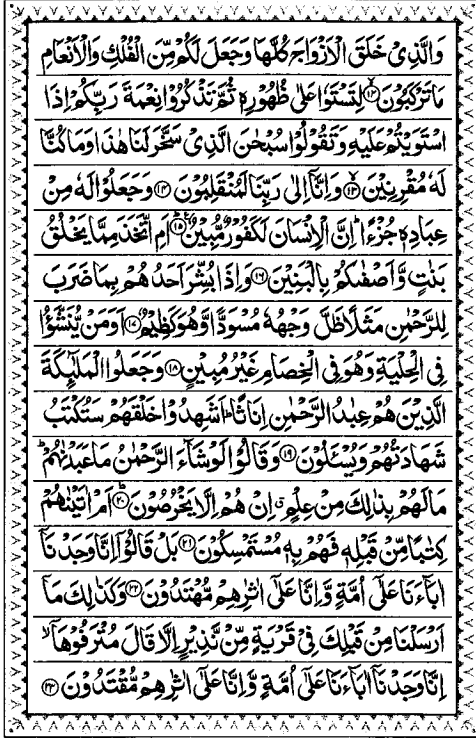 وَالَّذِىۡ خَلَقَ الۡاَزۡوَاجَ كُلَّهَا وَجَعَلَ لَكُمۡ مِّنَ الۡفُلۡكِ وَالۡاَنۡعَامِ
مَا تَرۡكَبُوۡنَ ۙ‏﴿۱۲﴾ لِتَسۡتَوٗا عَلٰى ظُهُوۡرِهٖ ثُمَّ تَذۡكُرُوۡا نِعۡمَةَ رَبِّكُمۡ اِذَا
اسۡتَوَيۡتُمۡ عَلَيۡهِ وَتَقُوۡلُوۡا سُبۡحٰنَ الَّذِىۡ سَخَّرَ لَنَا هٰذَا وَمَا كُنَّا
لَهٗ مُقۡرِنِيۡنَ ۙ‏﴿۱۳﴾ وَاِنَّاۤ اِلٰى رَبِّنَا لَمُنۡقَلِبُوۡنَ‏﴿۱۴﴾ وَجَعَلُوۡا لَهٗ مِنۡ
عِبَادِهٖ جُزۡءًا ؕ اِنَّ الۡاِنۡسَانَ لَـكَفُوۡرٌ مُّبِيۡنٌ ؕ‏﴿۱۵﴾ اَمِ اتَّخَذَ مِمَّا يَخۡلُقُ
بَنٰتٍ وَّاَصۡفٰٮكُمۡ بِالۡبَنِيۡنَ‏﴿۱۶﴾ وَاِذَا بُشِّرَ اَحَدُهُمۡ بِمَا ضَرَبَ
لِلرَّحۡمٰنِ مَثَلًا ظَلَّ وَجۡهُهٗ مُسۡوَدًّا وَّهُوَ كَظِيۡمٌ‏﴿۱۷﴾ اَوَمَنۡ يُّنَشَّؤُا
فِى الۡحِلۡيَةِ وَهُوَ فِى الۡخِصَامِ غَيۡرُ مُبِيۡنٍ‏﴿۱۸﴾ وَجَعَلُوا الۡمَلٰٓٮِٕكَةَ
الَّذِيۡنَ هُمۡ عِبٰدُ الرَّحۡمٰنِ اِنَاثًا ؕ اَشَهِدُوۡا خَلۡقَهُمۡ ؕ سَتُكۡتَبُ
شَهَادَتُهُمۡ وَيُسۡـَٔـلُوۡنَ‏﴿۱۹﴾ وَقَالُوۡا لَوۡ شَآءَ الرَّحۡمٰنُ مَا عَبَدۡنٰهُمۡ ؕ
مَا لَهُمۡ بِذٰلِكَ مِنۡ عِلۡمٍ ۗ اِنۡ هُمۡ اِلَّا يَخۡرُصُوۡنَ ؕ‏﴿۲۰﴾ اَمۡ اٰتَيۡنٰهُمۡ
كِتٰبًا مِّنۡ قَبۡلِهٖ فَهُمۡ بِهٖ مُسۡتَمۡسِكُوۡنَ‏﴿۲۱﴾ بَلۡ قَالُوۡۤا اِنَّا وَجَدۡنَاۤ
اٰبَآءَنَا عَلٰٓى اُمَّةٍ وَّاِنَّا عَلٰٓى اٰثٰرِهِمۡ مُّهۡتَدُوۡنَ‏﴿۲۲﴾ وَكَذٰلِكَ مَاۤ
اَرۡسَلۡنَا مِنۡ قَبۡلِكَ فِىۡ قَرۡيَةٍ مِّنۡ نَّذِيۡرٍ اِلَّا قَالَ مُتۡرَفُوۡهَاۤ ۙ
اِنَّا وَجَدۡنَاۤ اٰبَآءَنَا عَلٰٓى اُمَّةٍ وَّاِنَّا عَلٰٓى اٰثٰرِهِمۡ مُّقۡتَدُوۡنَ‏﴿۲۳﴾